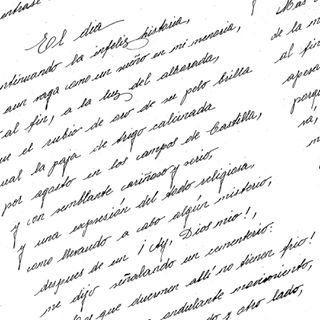 El dia
continuando la infeliz historia,
aun vaga como un sueño en mi memoria,
al fin, a la luz del alborada,
que el rubio de oro de su pelo brilla
cual la paja de trigo calcinada
por agosto en los campos de Castilla,
y con semblante cariñoso y serio,
y una expresión del todo religiosa,
como llevando a cabo algún misterio,
despues de un ¡Ay, Dios mio!,
me dijo señalando un cementerio:
que duermen allí no tienen frio!
ondulante movimiento,
y otro lado,
de la
al fin